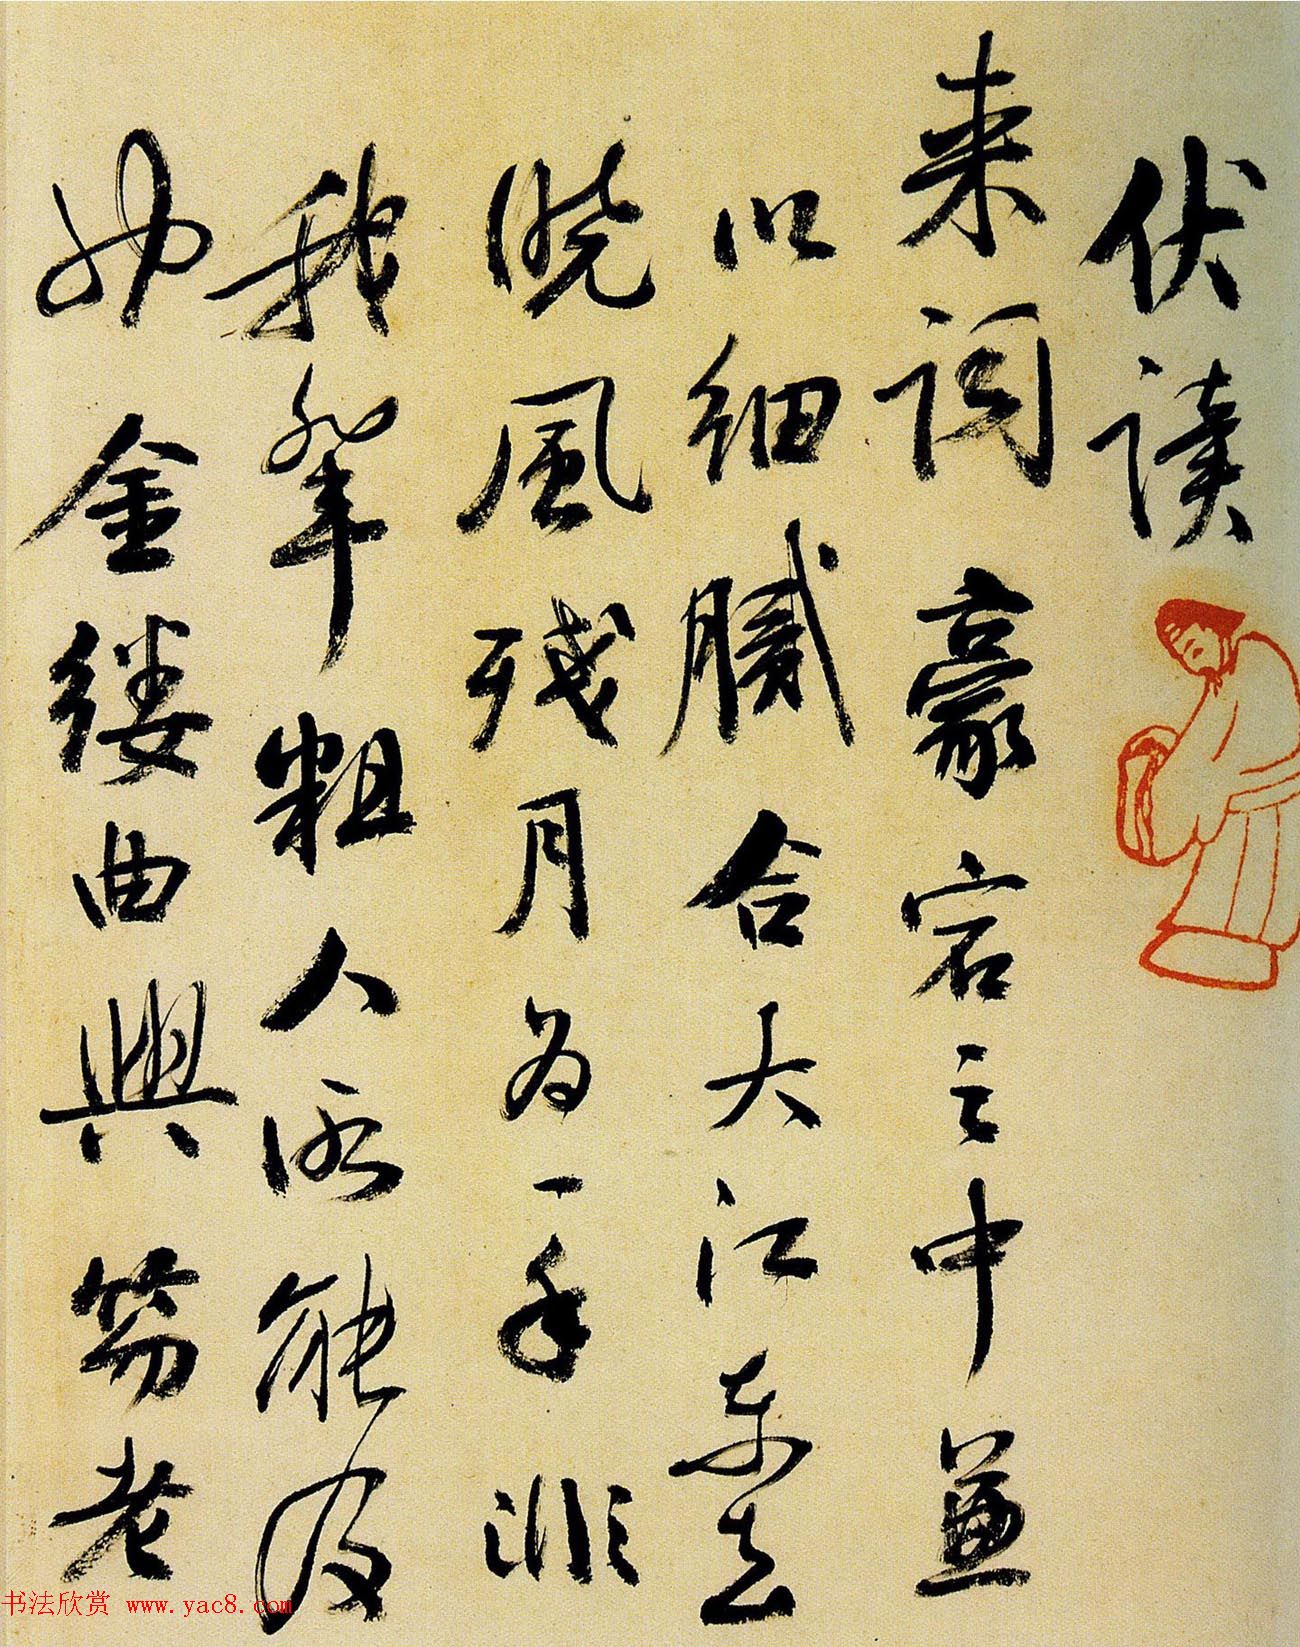 伏讀
来詞豪宕之中兼
以細膩合大江東去
曉風殘月為一手非
我輩粗人所能及
也金縷曲與笏老
书法欣赏 www.yac8.com